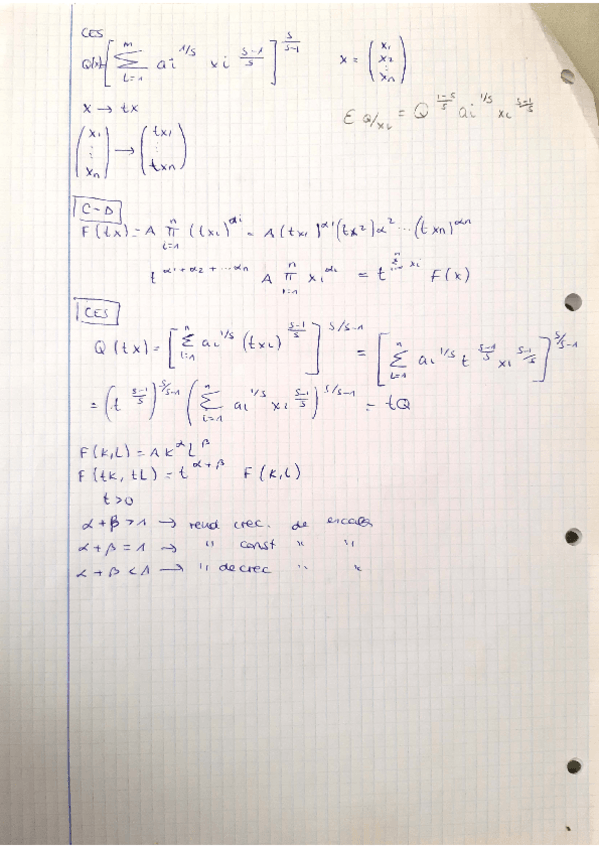 CES
Q(x)=[∑_{i=1}^{n} ai^{1/s} xi^{\frac{s-1}{s}}]^{\frac{s}{s-1}} x = (x1 x2 ⋮ xn)
x → tx ε Q/xi = Q^{\frac{1-s}{s}} ai^{1/s} xi^{\frac{s-1}{s}}
(x1 ⋮ xn) → (tx1 ⋮ txn)
C-D
F(tx) = A ∏_{i=1}^{n} (txi)^{αi} = A(tx1)^{α1}(tx2)α^{2} ... (txn)^{αn}
t^{α1+α2+...αn} A ∏_{i=1}^{n} xi^{αi} = t^{∑_{i=1}^{n} αi} F(x)
CES
Q(tx) = [∑_{i=1}^{n} ai^{1/s} (txi)^{\frac{s-1}{s}}]^{s/s-1} = [∑_{i=1}^{n} ai^{1/s} t^{\frac{s-1}{s}} xi^{\frac{s-1}{s}}]^{s/s-1}
= (t^{\frac{s-1}{s}})^{s/s-1} (∑_{i=1}^{n} ai^{1/s} xi^{\frac{s-1}{s}})^{s/s-1} = tQ
F(K,L) = AK^{α}L^{β}
F(tK, tL) = t^{α+β} F(K,L)
t>0
α+β>1 → rend crec. de escala
α+β=1 → " const " "
α+β<1 → " decrec " "